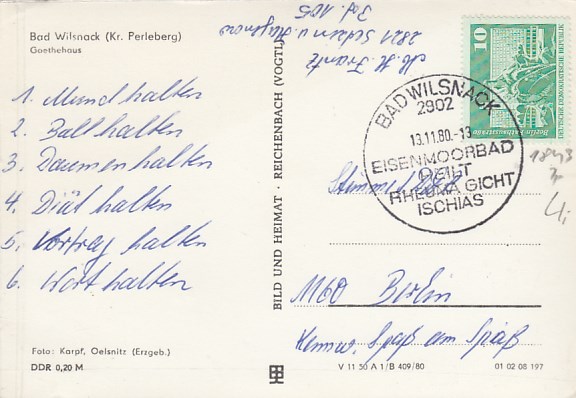 Bad Wilsnack (Kr. Perleberg)
Goethehaus
1. Mund halten
2. Ball halten
3. Daumen halten
4. Diät halten
5. Vortrag halten
6. Wort halten
Foto: Karpf, Oelsnitz (Erzgeb.)
DDR 0,20 M
BILD UND HEIMAT · REICHENBACH (VOGTL)
H. Frantz
2821
105
10
DEUTSCHE DEMOKRATISCHE REPUBLIK
BAD WILSNACK
2902
13.11.80.-13
EISENMOORBAD
HEILT
RHEUMA GICHT
ISCHIAS
1843
Stimme
1160 Berlin
Kennw. Spaß am Spaß
V 11 50 A 1/B 409/80
01 02 08 197